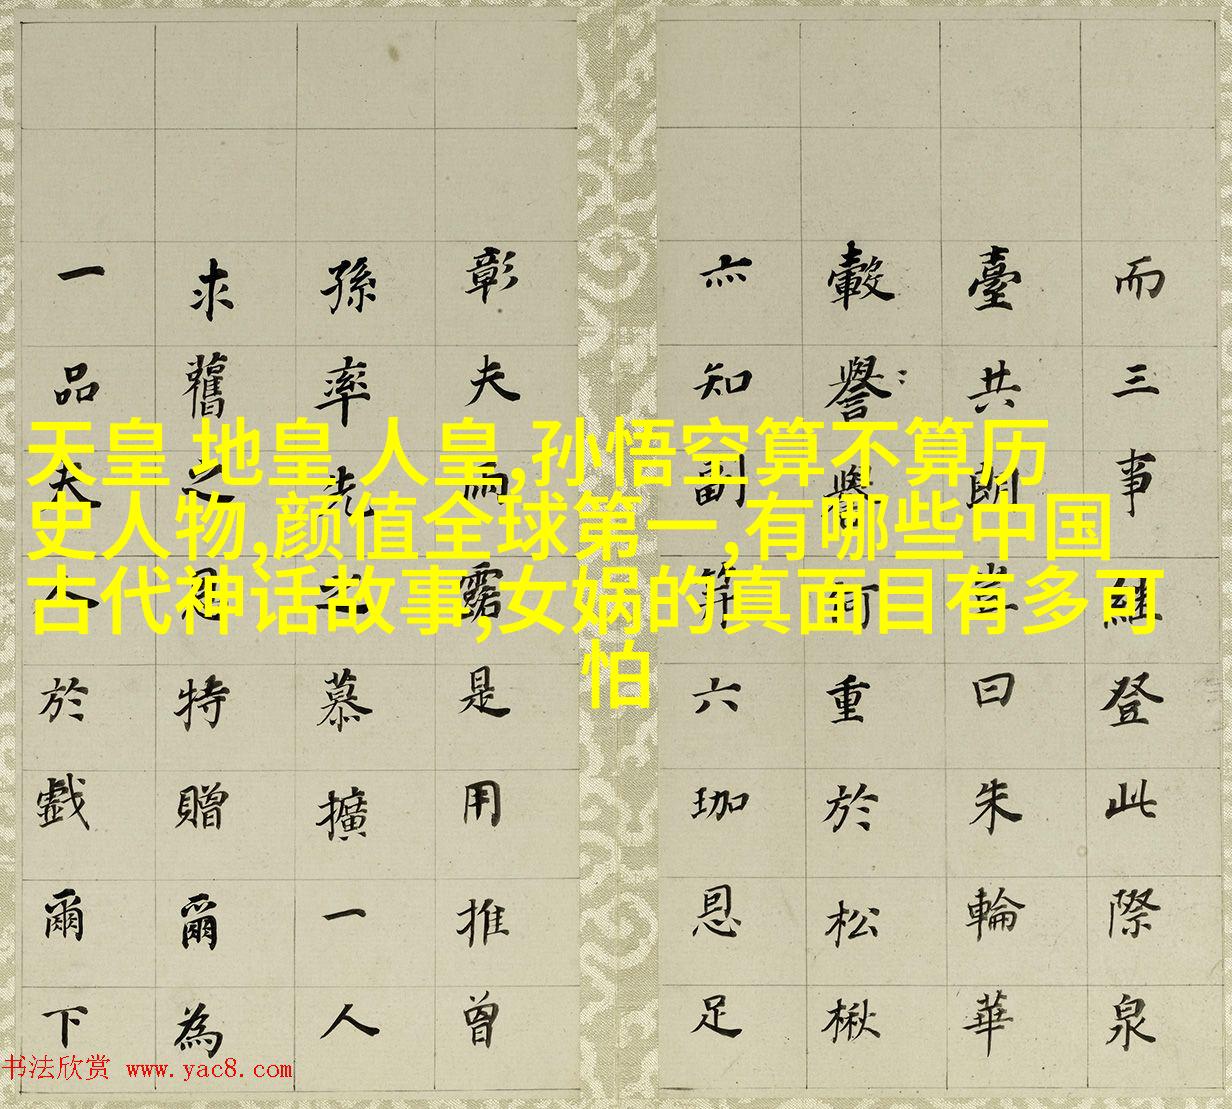 天皇 地皇 人皇,孙悟空算不算历
史人物,颜值全球第一,有哪些中国
古代神话故事,女娲的真面目有多可
怕
而三事維登此際泉
臺共朗豈曰朱輪華
轂譽何重於松楸
亦知副笄六珈恩足
彰夫雨露是用推曾
孫率先之慕擴一人
求舊之恩特贈爾為
一品夫人於戲爾下
书法欣赏 www.yac8.com